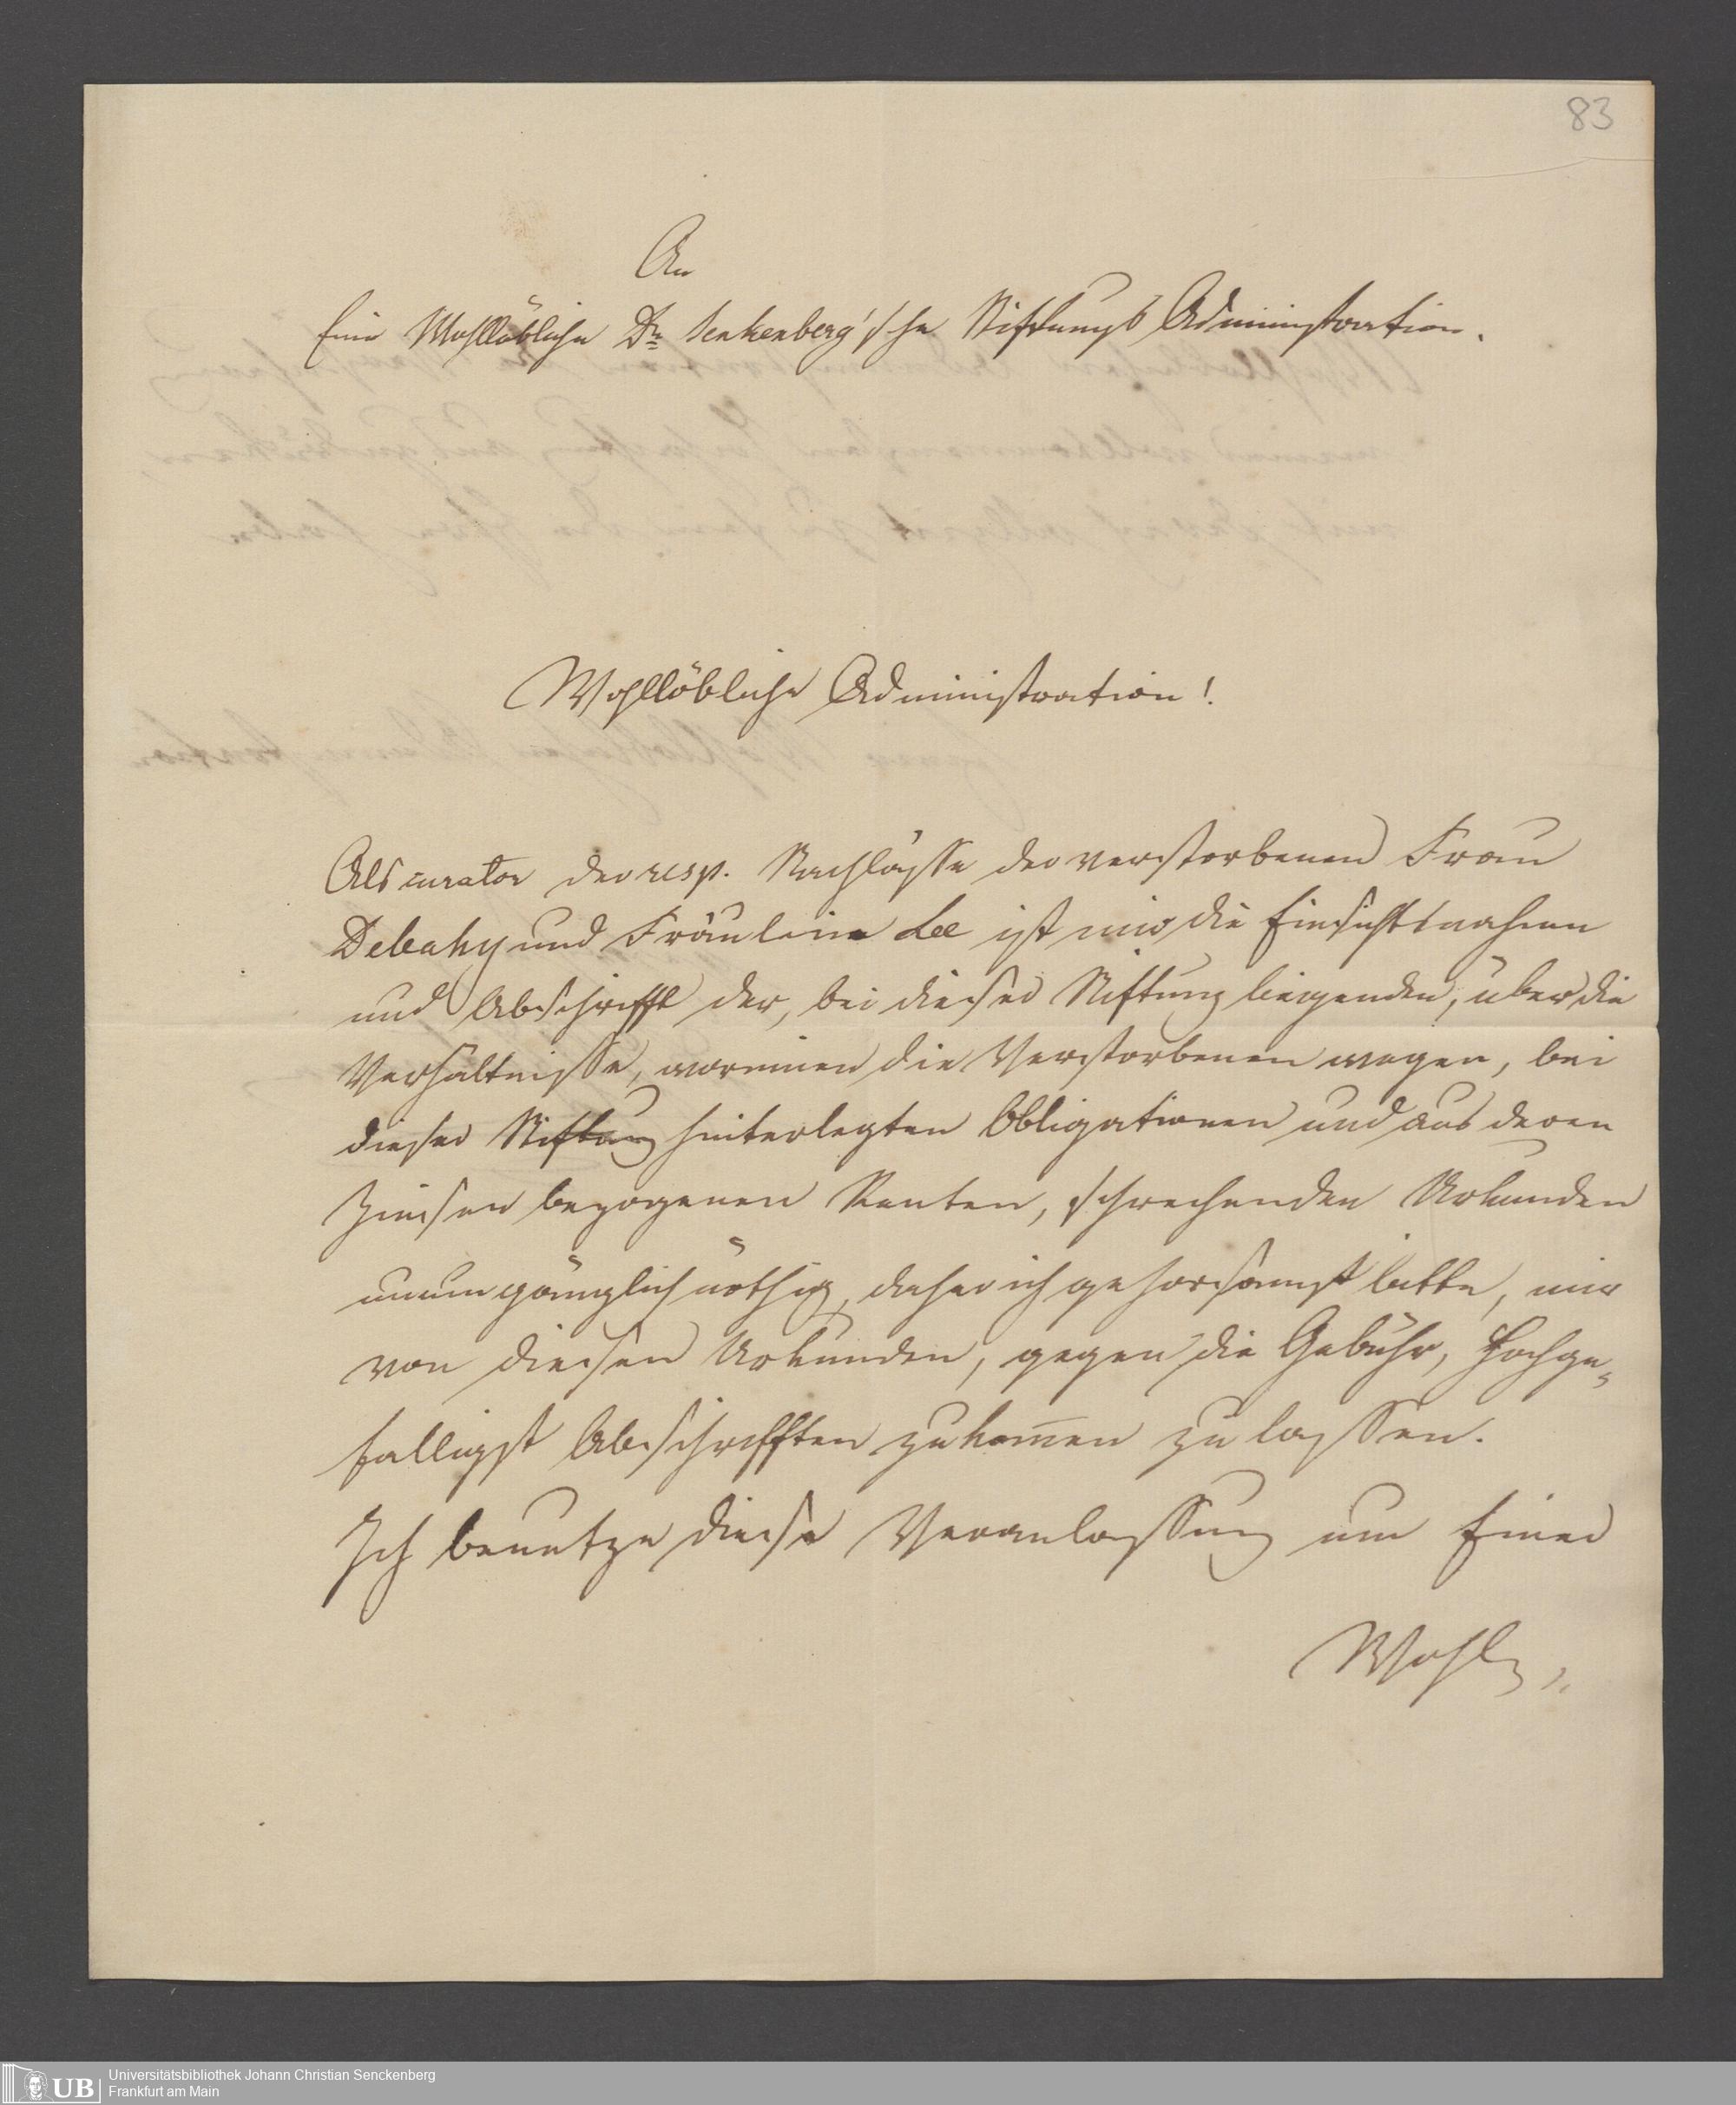 83
An
Eine Wohllöbliche Dr Senkenberg'sche Stiftungs Administration.
Wohllöbliche Administration!
Als curator der resp. Nachlässe der verstorbenen Frau
Debahy und Fräulein Lee ist mir die Einsichtsnahme
und Abschrifft der, bei dieser Stiftung liegenden, über die
Verhältnisse, worinnen die Verstorbenen wegen, bei
dieser Stiftung hinterlegten Obligationen und aus deren
Zinsen bezogenen Renten, sprechenden Urkunden
unumgänglich nöthig, daher ich gehorsamst bitte, mir
von diesen Urkunden, gegen die Gebühr, hochge-
fälligst Abschrifften zukom̅en zu lassen.
Ich benutze diese Veranlassung um Einer
Wohl
Universitätsbibliothek Johann Christian Senckenberg
Frankfurt am Main
UB